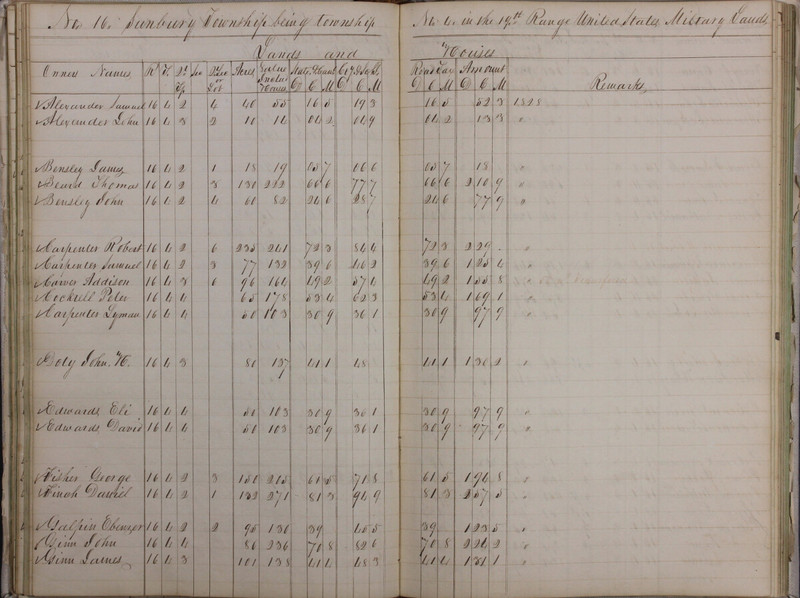 No 16. Sunbury Township being township No 4 in the 17th Range United States Military Lands
Lands and Houses
Owners Names Acres Road Tax Amount Remarks
Alexander Samuel 16 4 2 4 40 55 16 5 19 3 16 5 52 3 1828
Alexander John 16 4 3 2 10 14 04 2 04 9 04 2 13 3 "
Bensley James 16 4 2 1 18 19 05 7 06 6 05 7 18 "
Beard Thomas 16 4 2 3 130 222 66 6 77 7 66 6 2 10 9 "
Bensley John 16 4 2 4 60 82 24 6 28 7 24 6 77 9 "
Carpenter Robert 16 4 2 6 235 241 72 3 84 4 72 3 2 29 - "
Carpenter Samuel 16 4 2 3 77 132 39 6 46 2 39 6 1 25 4 "
Carver Addison 16 4 3 6 96 164 49 2 57 4 49 2 1 55 8 "
Cockrell Peter 16 4 4 65 178 53 4 62 3 53 4 1 69 1 "
Carpenter Lyman 16 4 4 50 103 30 9 36 1 30 9 97 9 "
Doty John. H. 16 4 3 80 137 41 1 48 41 1 1 30 2 "
Edwards Eli 16 4 4 50 103 30 9 36 1 30 9 97 9 "
Edwards David 16 4 4 50 103 30 9 36 1 30 9 97 9 "
Fisher George 16 4 2 3 150 205 61 5 71 8 61 5 1 94 8 "
Finch Daniel 16 4 2 1 132 271 81 3 94 9 81 3 2 57 5 "
Galpin Ebenezer 16 4 2 2 95 130 39 45 5 39 1 23 5 "
Ginn John 16 4 4 86 236 70 8 82 6 70 8 2 24 2 "
Ginn James 16 4 3 101 138 41 4 48 3 41 4 1 31 1 "